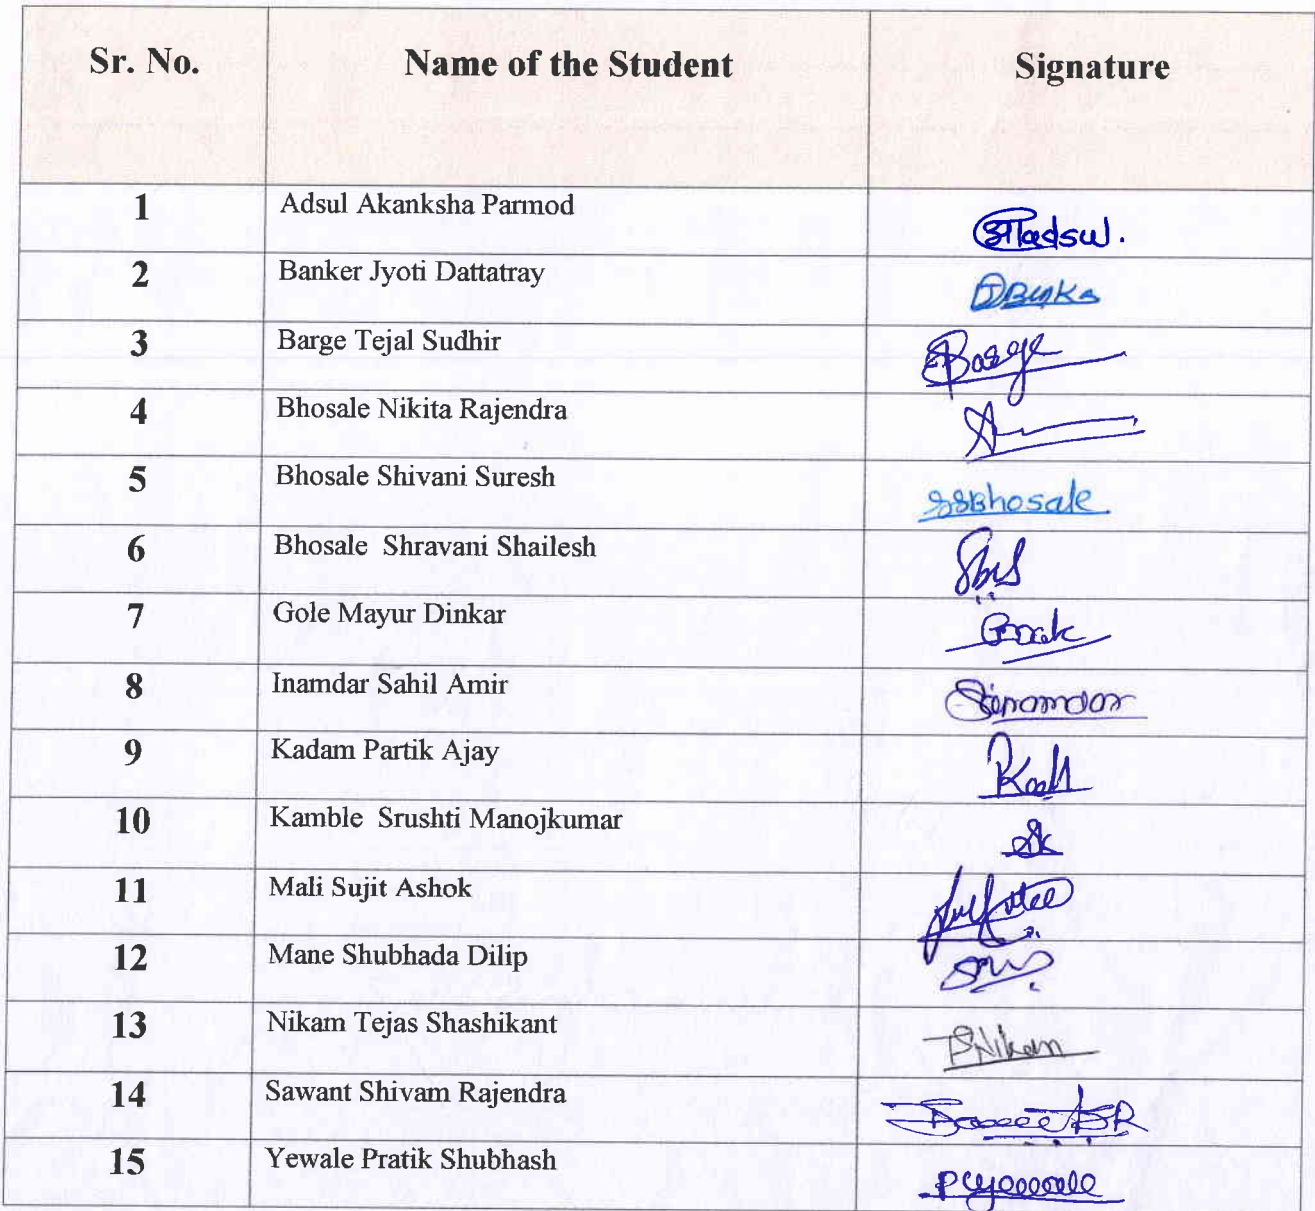 Sr. No. Name of the Student Signature
1 Adsul Akanksha Parmod आAdsul.
2 Banker Jyoti Dattatray
3 Barge Tejal Sudhir Barge
4 Bhosale Nikita Rajendra
5 Bhosale Shivani Suresh SSBhosale
6 Bhosale Shravani Shailesh
7 Gole Mayur Dinkar
8 Inamdar Sahil Amir Sinamdar
9 Kadam Partik Ajay
10 Kamble Srushti Manojkumar SK
11 Mali Sujit Ashok
12 Mane Shubhada Dilip
13 Nikam Tejas Shashikant TSNikam
14 Sawant Shivam Rajendra
15 Yewale Pratik Shubhash